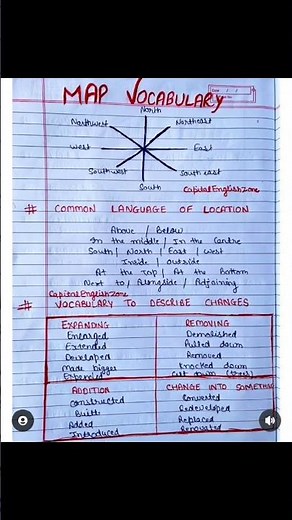 MAP VOCABULARY
North
Northwest Northeast
West East
Southwest South east
South
CapitalEnglishZone
# COMMON LANGUAGE OF LOCATION
Above / Below
In the middle / In the Centre
South / North / East / West
Inside / outside
At the Top / At the Bottom
Next to / Alongside / Adjoining
CapitalEnglishZone
# VOCABULARY TO DESCRIBE CHANGES
EXPANDING
Enlarged
Extended
Developed
Made bigger
Expanded
REMOVING
Demolished
Pulled down
Removed
Knocked down
Cut down (trees)
ADDITION
Constructed
Built
Added
Introduced
CHANGE INTO SOMETHING
Converted
Redeveloped
Replaced
Renovated